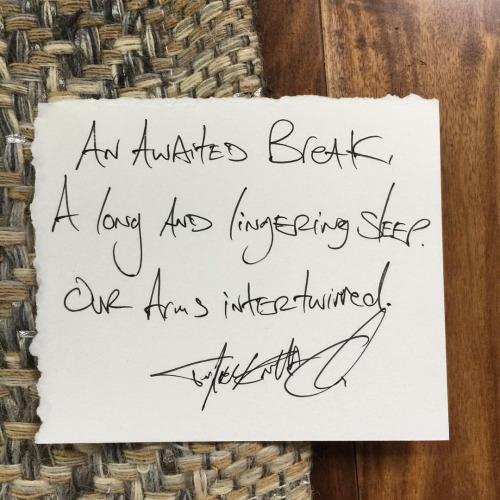 An Awaited Break,
A long and lingering sleep.
Our Arms intertwined.